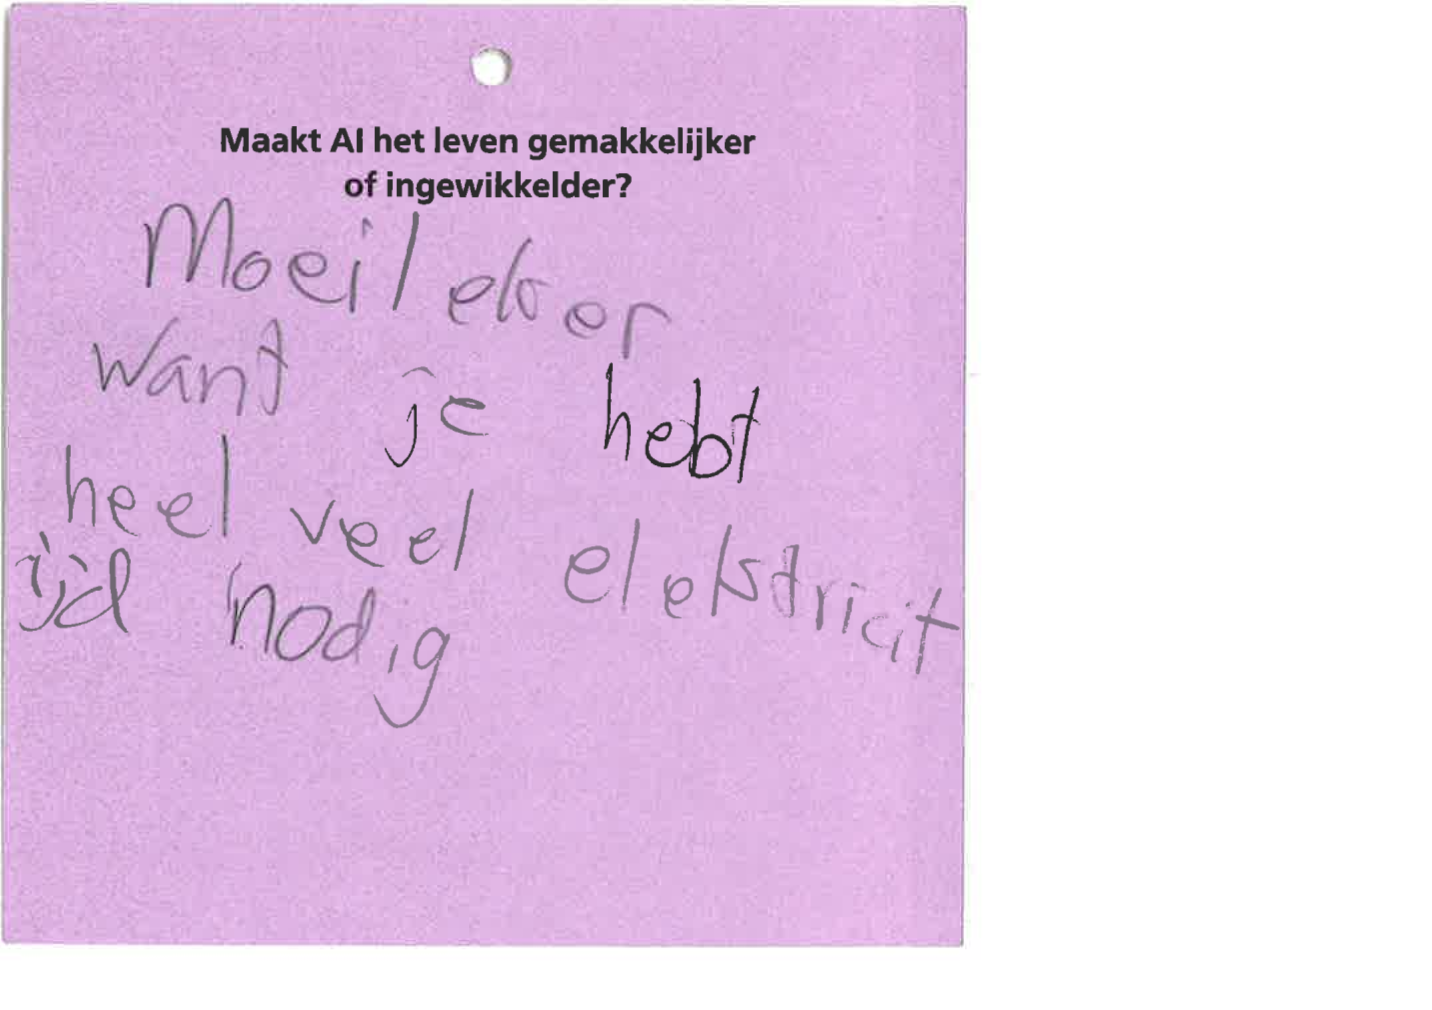 Maakt AI het leven gemakkelijker
of ingewikkelder?
Moeileker
want je hebt
heel veel elekstricit
ijd nodig